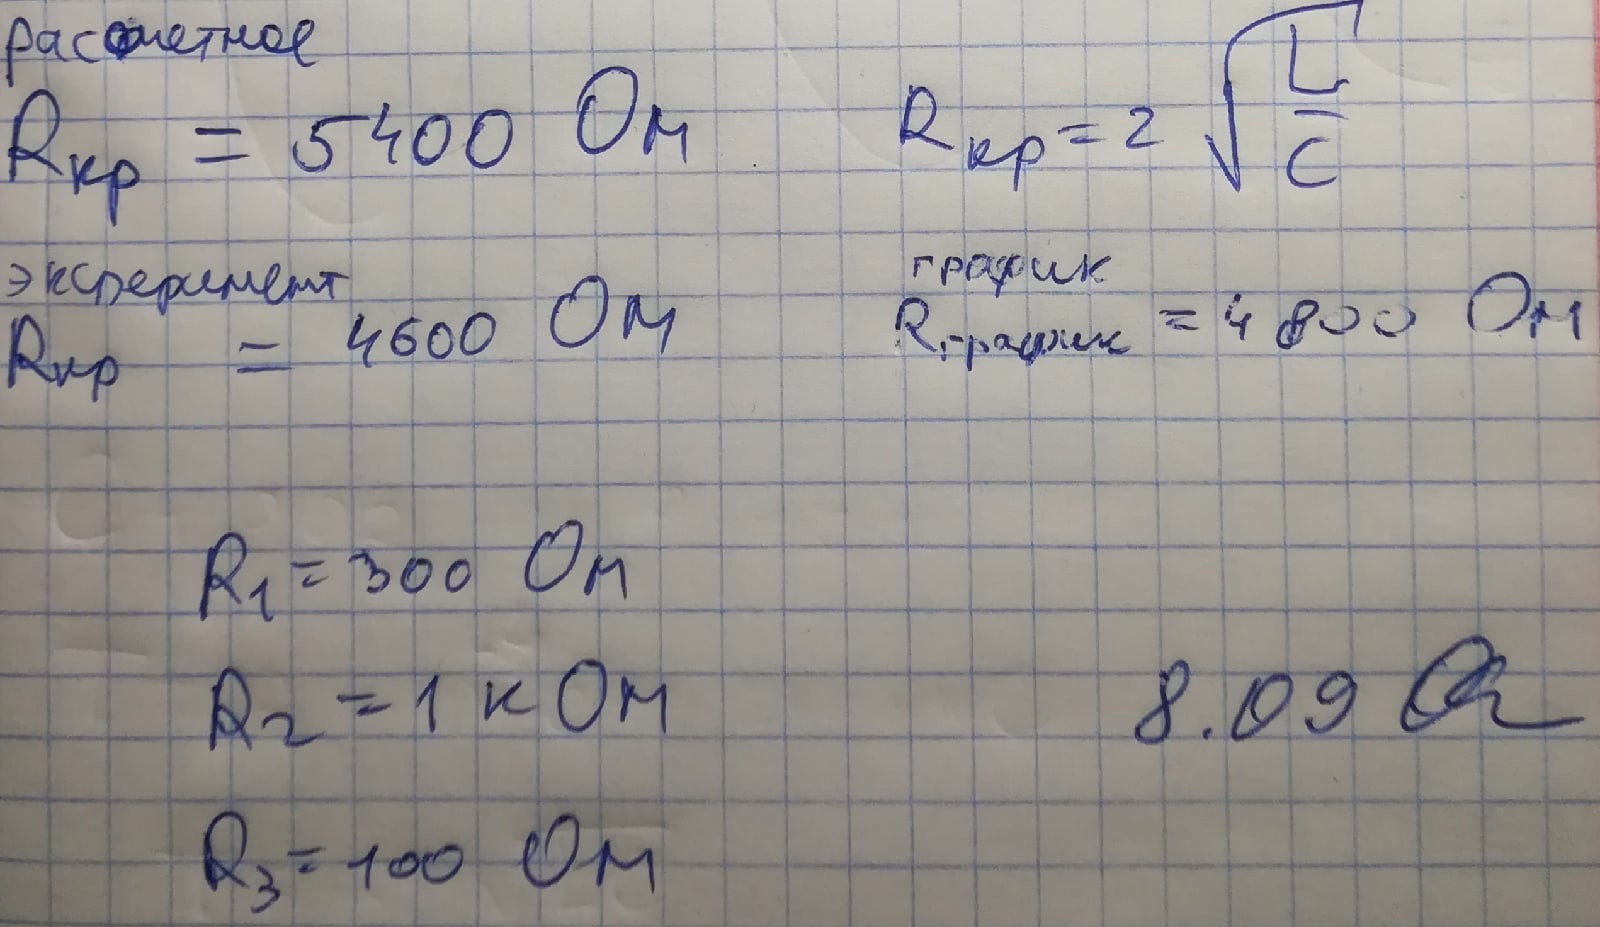 расчетное
Rкр = 5400 Ом
Rкр = 2 √(L/C)
эксперимент
Rкр = 4600 Ом
график
Rграфик = 4800 Ом
R1 = 300 Ом
R2 = 1 кОм
8.09
R3 = 100 Ом